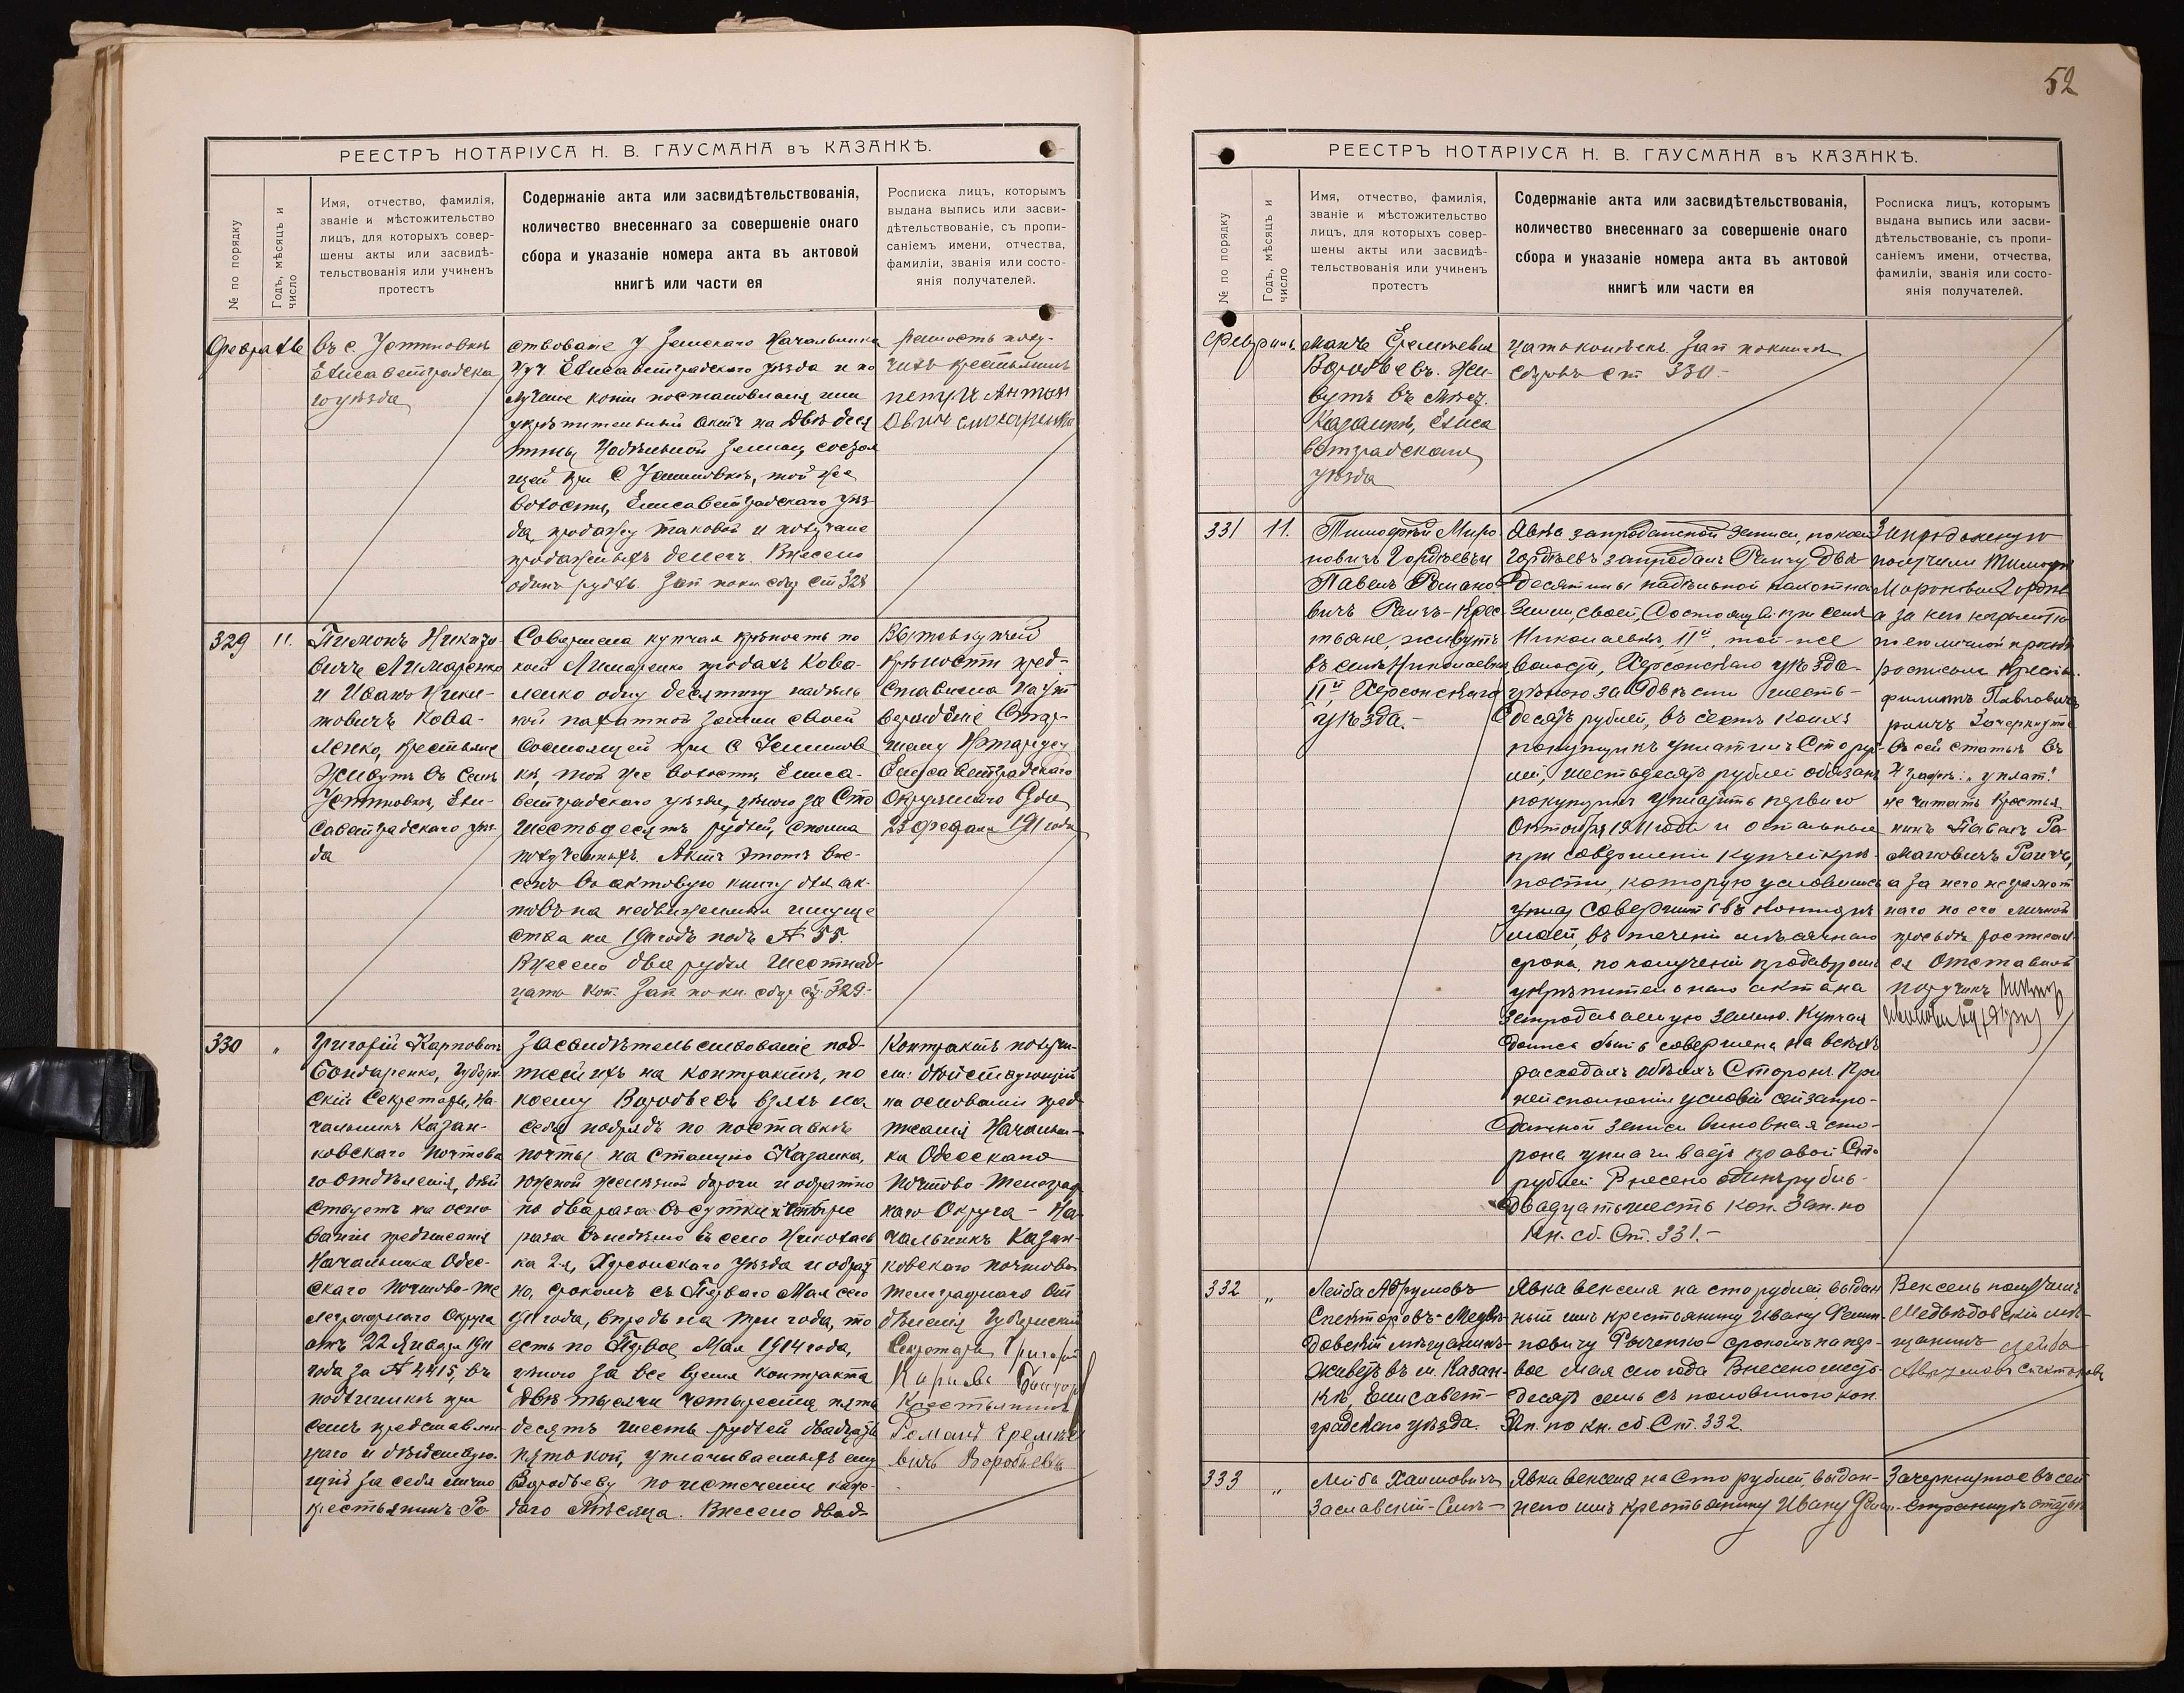 52
РЕЕСТРЪ НОТАРІУСА Н. В. ГАУСМАНА въ КАЗАНКѢ.
№ по порядку
Годъ, мѣсяцъ и число
Имя, отчество, фамилія,
званіе и мѣстожительство
лицъ, для которыхъ совер-
шены акты или засвидѣ-
тельствованія или учиненъ
протестъ
Содержаніе акта или засвидѣтельствованія,
количество внесеннаго за совершеніе онаго
сбора и указаніе номера акта въ актовой
книгѣ или части ея
Росписка лицъ, которымъ
выдана выпись или засви-
дѣтельствованіе, съ пропи-
саніемъ имени, отчества,
фамиліи, званія или состо-
янія получателей.
Февраль
въ с.
Елисаветградска
го уѣзда
ствованіе у Земскаго Начальника
уч Елисаветградскаго уѣзда и по
лученіе копіи постановленія или
укрѣпительный актъ на двѣ деся
тины надѣльной земли, состоя
щей при с той же
волости, Елисаветградскаго уѣз-
да, продажу таковой и полученіе
продажныхъ денегъ. Внесено
одинъ рубль. Зап по кн сбор ст 328
полу-
чилъ крестьянинъ
Антон
ович
329
11.
Пимонъ
вичъ Лимаренко
и Иванъ Ники-
товичъ Кова-
ленко, крестьяне
Живутъ въ селѣ
Ели-
саветградскаго уѣз-
да
Совершена купчая крѣпость по
коей Лимаренко продалъ Кова-
ленко одну десятину надѣль
ной пахатной земли своей
состоящей при с
кѣ, той же волости Елиса-
ветградскаго уѣзда, цѣною за Сто
шестьдесятъ рублей, сполна
полученныхъ. Актъ этотъ вне-
сенъ въ актовую книгу для ак-
товъ на недвижимыя имуще
ства на 1911 годъ подъ № 55.
Внесено два рубля шестнад-
цать коп. Зап по кн. сбор ст. 329.
Выпись купчей
крѣпости пред-
ставлена на ут
вержденіе Стар-
шему Нотаріусу
Елисаветградскаго
Окружнаго Суда
23 февраля 1911 года
330
„
Григорій Карповичъ
Бондаренко, Губерн
скій Секретарь, На-
чальникъ Казан-
ковскаго почтова
го отдѣленія, дѣй
ствуетъ на осно
ваніи предписанія
Начальника Одес-
скаго Почтово-Те
леграфнаго Округа
отъ 22 Января 1911
года за № 4415, въ
подлинникѣ при
семъ представлен-
наго и дѣйствую-
щій за себя лично
крестьянинъ Ро-
Засвидѣтельствованіе под-
писей ихъ на контрактѣ, по
коему Воробьевъ взялъ на
себя подрядъ по поставкѣ
почты на станцію Казанка,
южной желѣзной дороги и обратно
по два раза въ сутки и четыре
раза въ недѣлю въ село Николаев
ка 2-я, Херсонскаго уѣзда и обрат
но, срокомъ съ Перваго Мая сего
1911 года, впредь на три года, то
есть по Первое Мая 1914 года,
цѣною за все время контракта
двѣ тысячи четыреста пять
десятъ шесть рублей двадцать
пять коп, уплачиваемыхъ ему
Воробьеву по истеченіи каж-
даго Мѣсяца. Внесено двад-
Контрактъ получи-
ли: дѣйствующій
на основаніи пред
писанія Начальни-
ка Одесскаго
Почтово-Телеграф
наго Округа - На
чальникъ Казан-
ковскаго почтово
телеграфнаго От
дѣленія Губернскій
Секретарь Григорій
Карповъ
Крестьянинъ
Романъ Еремѣе
вичъ Воробьевъ
РЕЕСТРЪ НОТАРІУСА Н. В. ГАУСМАНА въ КАЗАНКѢ.
№ по порядку
Годъ, мѣсяцъ и число
Имя, отчество, фамилія,
званіе и мѣстожительство
лицъ, для которыхъ совер-
шены акты или засвидѣ-
тельствованія или учиненъ
протестъ
Содержаніе акта или засвидѣтельствованія,
количество внесеннаго за совершеніе онаго
сбора и указаніе номера акта въ актовой
книгѣ или части ея
Росписка лицъ, которымъ
выдана выпись или засви-
дѣтельствованіе, съ пропи-
саніемъ имени, отчества,
фамиліи, званія или состо-
янія получателей.
Февраль
манъ Еремѣевичъ
Воробьевъ. Жи-
вутъ въ мѣст.
Казанкѣ, Елиса
ветградскаго
уѣзда
цать копѣекъ. Зап по книгѣ
сборовъ ст 330.-
331
11.
Тимофей Миро
новичъ Гордѣевъ и
Павелъ Романо-
вичъ Раичъ - крес-
тьяне, живутъ
въ селѣ Николаевкѣ
IIй, Херсонскаго
уѣзда.-
Явка запродажной записи, по коей
Гордѣевъ запродалъ Раичу двѣ
десятины надѣльной пахотной
земли, своей, состоящей при селѣ
Николаевкѣ, IIй, той-же
волости, Херсонскаго уѣзда-
цѣною за Двѣсти шесть-
десятъ рублей, въ счетъ коихъ
покупщикъ уплатилъ Сто руб-
лей, шестьдесятъ рублей обязанъ
покупщикъ уплатить перваго
Октября 1911 года и остальные
при совершеніи купчей крѣ-
пости, которую условились
совершить въ
въ теченіи мѣсячнаго
срока, по полученіи продавцомъ
укрѣпительнаго акта на
запродаваемую землю. Купчая
должна быть совершена на всѣхъ
расходахъ обѣихъ сторонъ. При
неисполненіи условій сей запро-
дажной записи виновная сто-
рона уплачиваетъ правой Сто
рублей. Внесено одинъ рубль
двадцать шесть коп. Зап. по
Кн. сб. Ст. 331.-
Запродажную
получили Тимофей
Мироновичъ Гордѣевъ
а за
по его личной просьбѣ
росписался крестьян.
Филиппъ Павловичъ
Раичъ Зачеркнутое
въ сей статьѣ въ
4 графѣ: „уплат."
не читать Крестья
нинъ Павелъ Ро-
мановичъ Раичъ,
а за него неграмот
наго по его личной
просьбѣ росписал-
ся Отставной
поручикъ
332
„
Лейба Абрумовъ
Спекторовъ - Медвѣ-
довскій мѣщанинъ-
живетъ въ м. Казан-
кѣ, Елисавет-
градскаго уѣзда.
Явка векселя на сто рублей, выдан
ный имъ крестьянину Ивану Филип
повичу Раченко - срокомъ на пер-
вое мая сего года Внесено шесть-
десятъ семь съ половиною коп.
Зап. по кн. сб. Ст. 332.
Вексель получилъ
Медвѣдовскій мѣ-
щанинъ Лейба
Абрумовъ Спекторовъ
333
„
Лейба Хаимовичъ
Заславскій -
Явка векселя на Сто рублей, выдан-
наго имъ крестьянину Ивану
Зачеркнутое въ сей